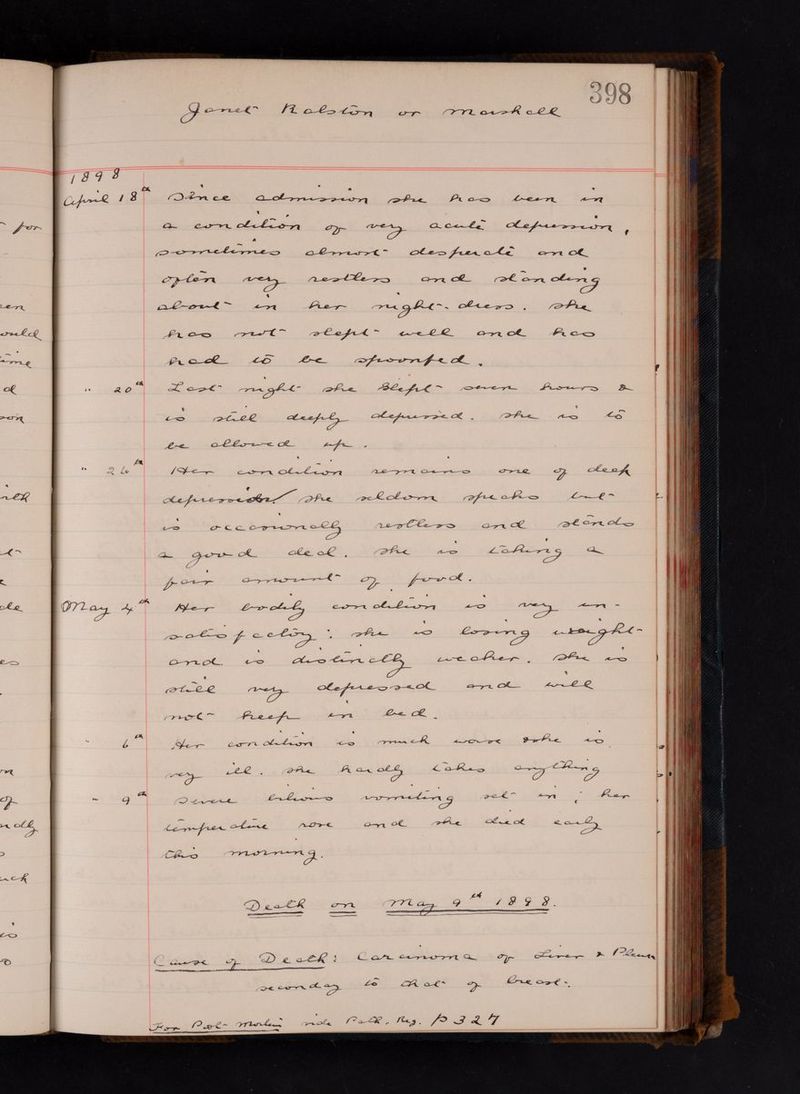 398
Janet Ralston or Marshall
1898
April 18th Since admission she has been in
a condition of very acute depression,
sometimes almost desperate and
often very restless and standing
about in her night-dress. She
has not slept well and has
had to be spoonfed.
" 20th Last night she slept seven hours &
is still deeply depressed. She is to
be allowed up.
" 26th Her condition remains one of deep
depression. She seldom speaks but
is occasionally restless and stands
a good deal. She is taking a
fair amount of food.
May 4th Her bodily condition is very un-
satisfactory: she is losing weight
and is distinctly weaker. She is
still very depressed and will
not keep in bed.
" 6th Her condition is much worse & she is
very ill. She hardly takes anything
" 9th Severe bilious vomiting set in; her
temperature rose and she died early
this morning.
Death on May 9th 1898.
Cause of Death: Carcinoma of Liver & Pleura
seconday to that of breast.
For Post- Mortem vide Path. Reg. p 327